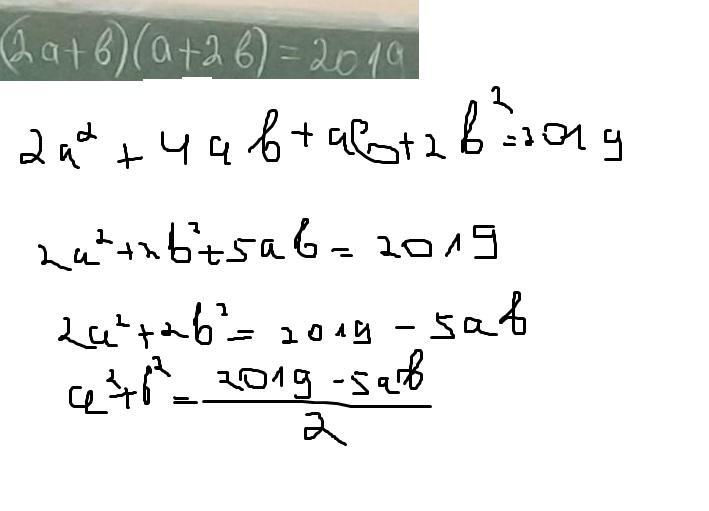 (2a+b)(a+2b)=2019
2a²+4ab+ab+2b²=2019
2a²+2b²+5ab=2019
2a²+2b²=2019-5ab
a²+b²=\frac{2019-5ab}{2}